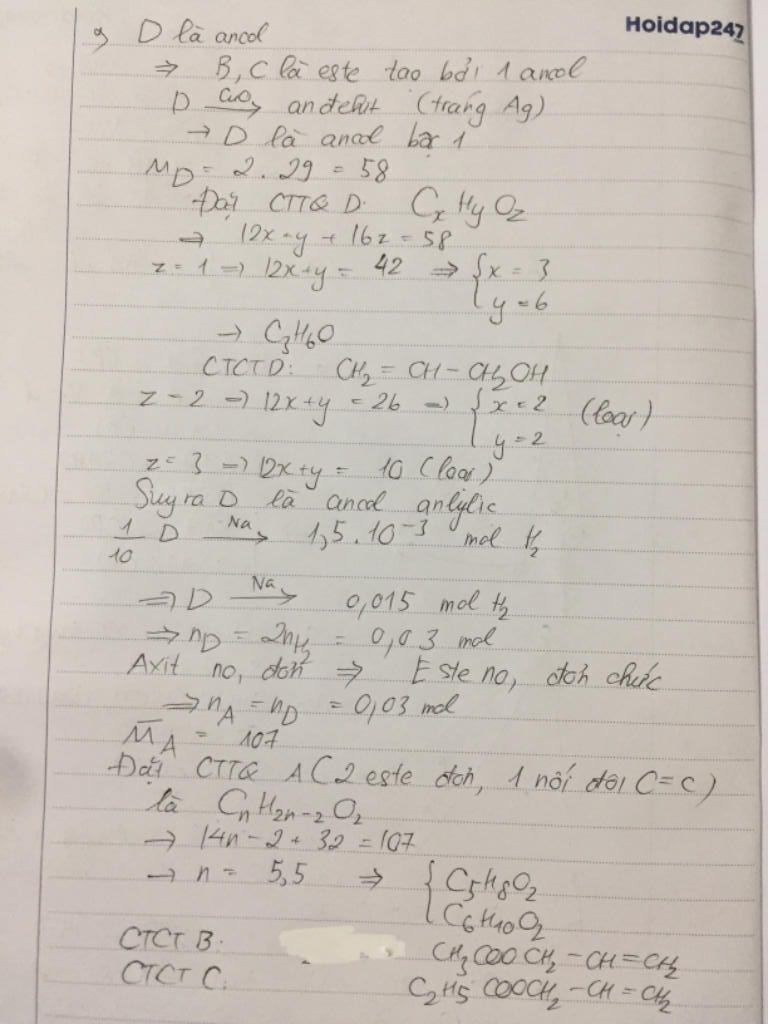 Hoidap247
a, D là ancol
⇒ B, C là este tạo bởi 1 ancol
D –CuO→ anđehit (tráng Ag)
→ D là ancol bậc 1
M_D = 2.29 = 58
Đặt CTTQ D: CxHyOz
⇒ 12x+y+16z=58
z=1 ⇒ 12x+y = 42 ⇒ { x = 3
y = 6
→ C3H6O
CTCT D: CH2 = CH – CH2OH
z = 2 ⇒ 12x+y = 26 ⇒ { x = 2 (loại)
y = 2
z = 3 ⇒ 12x+y = 10 (loại)
Suy ra D là ancol anlylic
1/10 D –Na→ 1,5.10⁻³ mol H2
⇒ D –Na→ 0,015 mol H2
⇒ nD = 2nH2 = 0,03 mol
Axit no, đơn ⇒ Este no, đơn chức
⇒ nA = nD = 0,03 mol
M̄_A = 107
Đặt CTTQ A (2 este đơn, 1 nối đôi C=C)
là CnH2n-2O2
→ 14n – 2 + 32 = 107
→ n = 5,5 ⇒ { C5H8O2
C6H10O2
CTCT B: CH3COOCH2 – CH = CH2
CTCT C: C2H5COOCH2 – CH = CH2